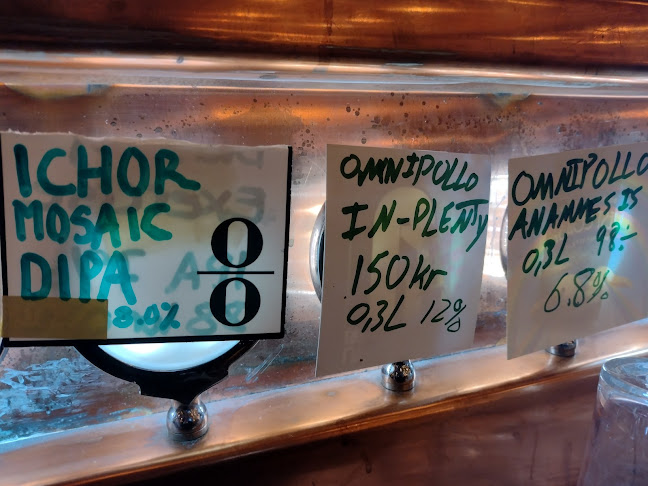 ICHOR
MOSAIC
DIPA
8.0%
0
0
OMNIPOLLO
IN-PLENTY
150kr
0,3L 12%
OMNIPOLLO
ANAMMESIS
0,3L 98:-
6.8%